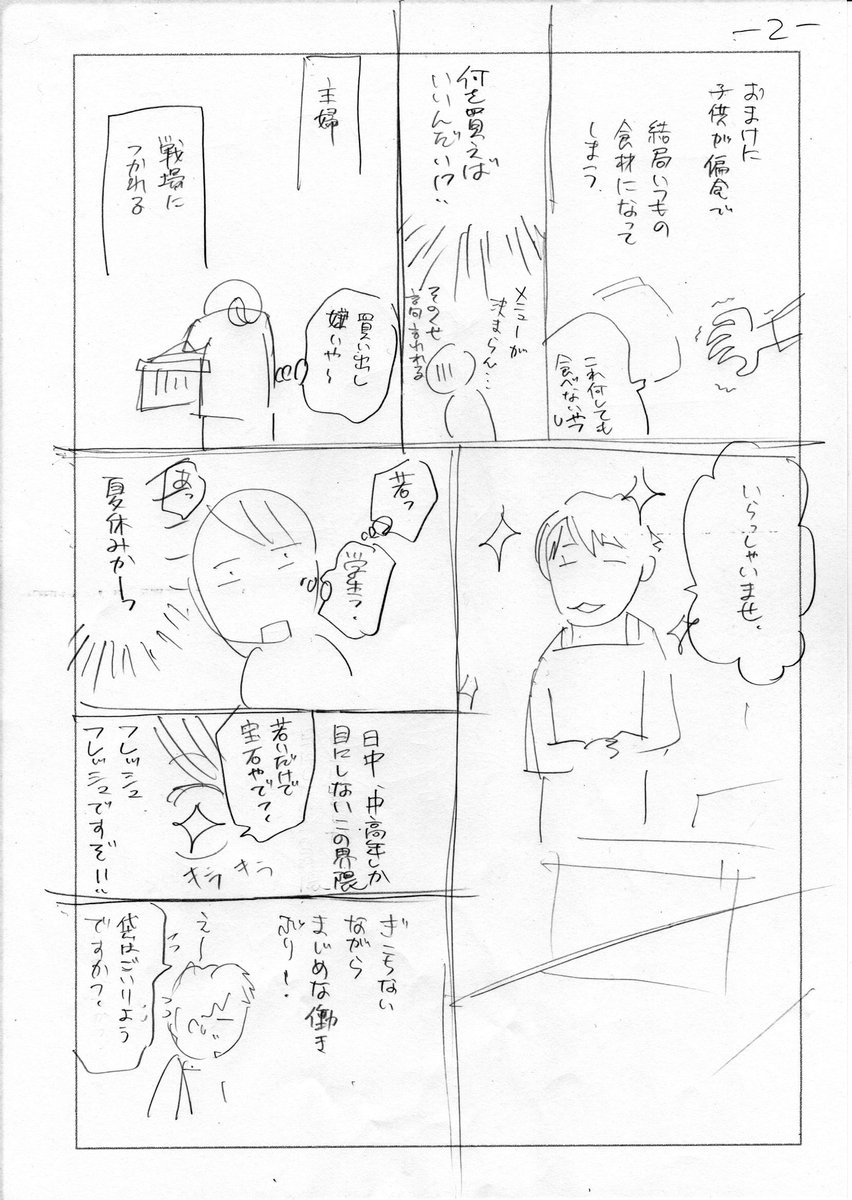 -2-
おまけに
子供が偏食で
結局いつもの
食材になって
しまう
これ何しても
食べないやつ
何を買えば
いいんだい!?
メニューが
決まらん…
そのくせ
主婦
戦場に
つかれる
買い出し
嫌いや～
いらっしゃいませ。
若っ
学生?
あっ
夏休みかーっ
日中、中高年しか
目にしないこの界隈
若いだけで
宝石やでっ
キラ キラ
フレッシュ
フレッシュですぞ!!
ぎこちない
ながら
まじめな働き
ぶり!
えー
袋はごいりよう
ですか?